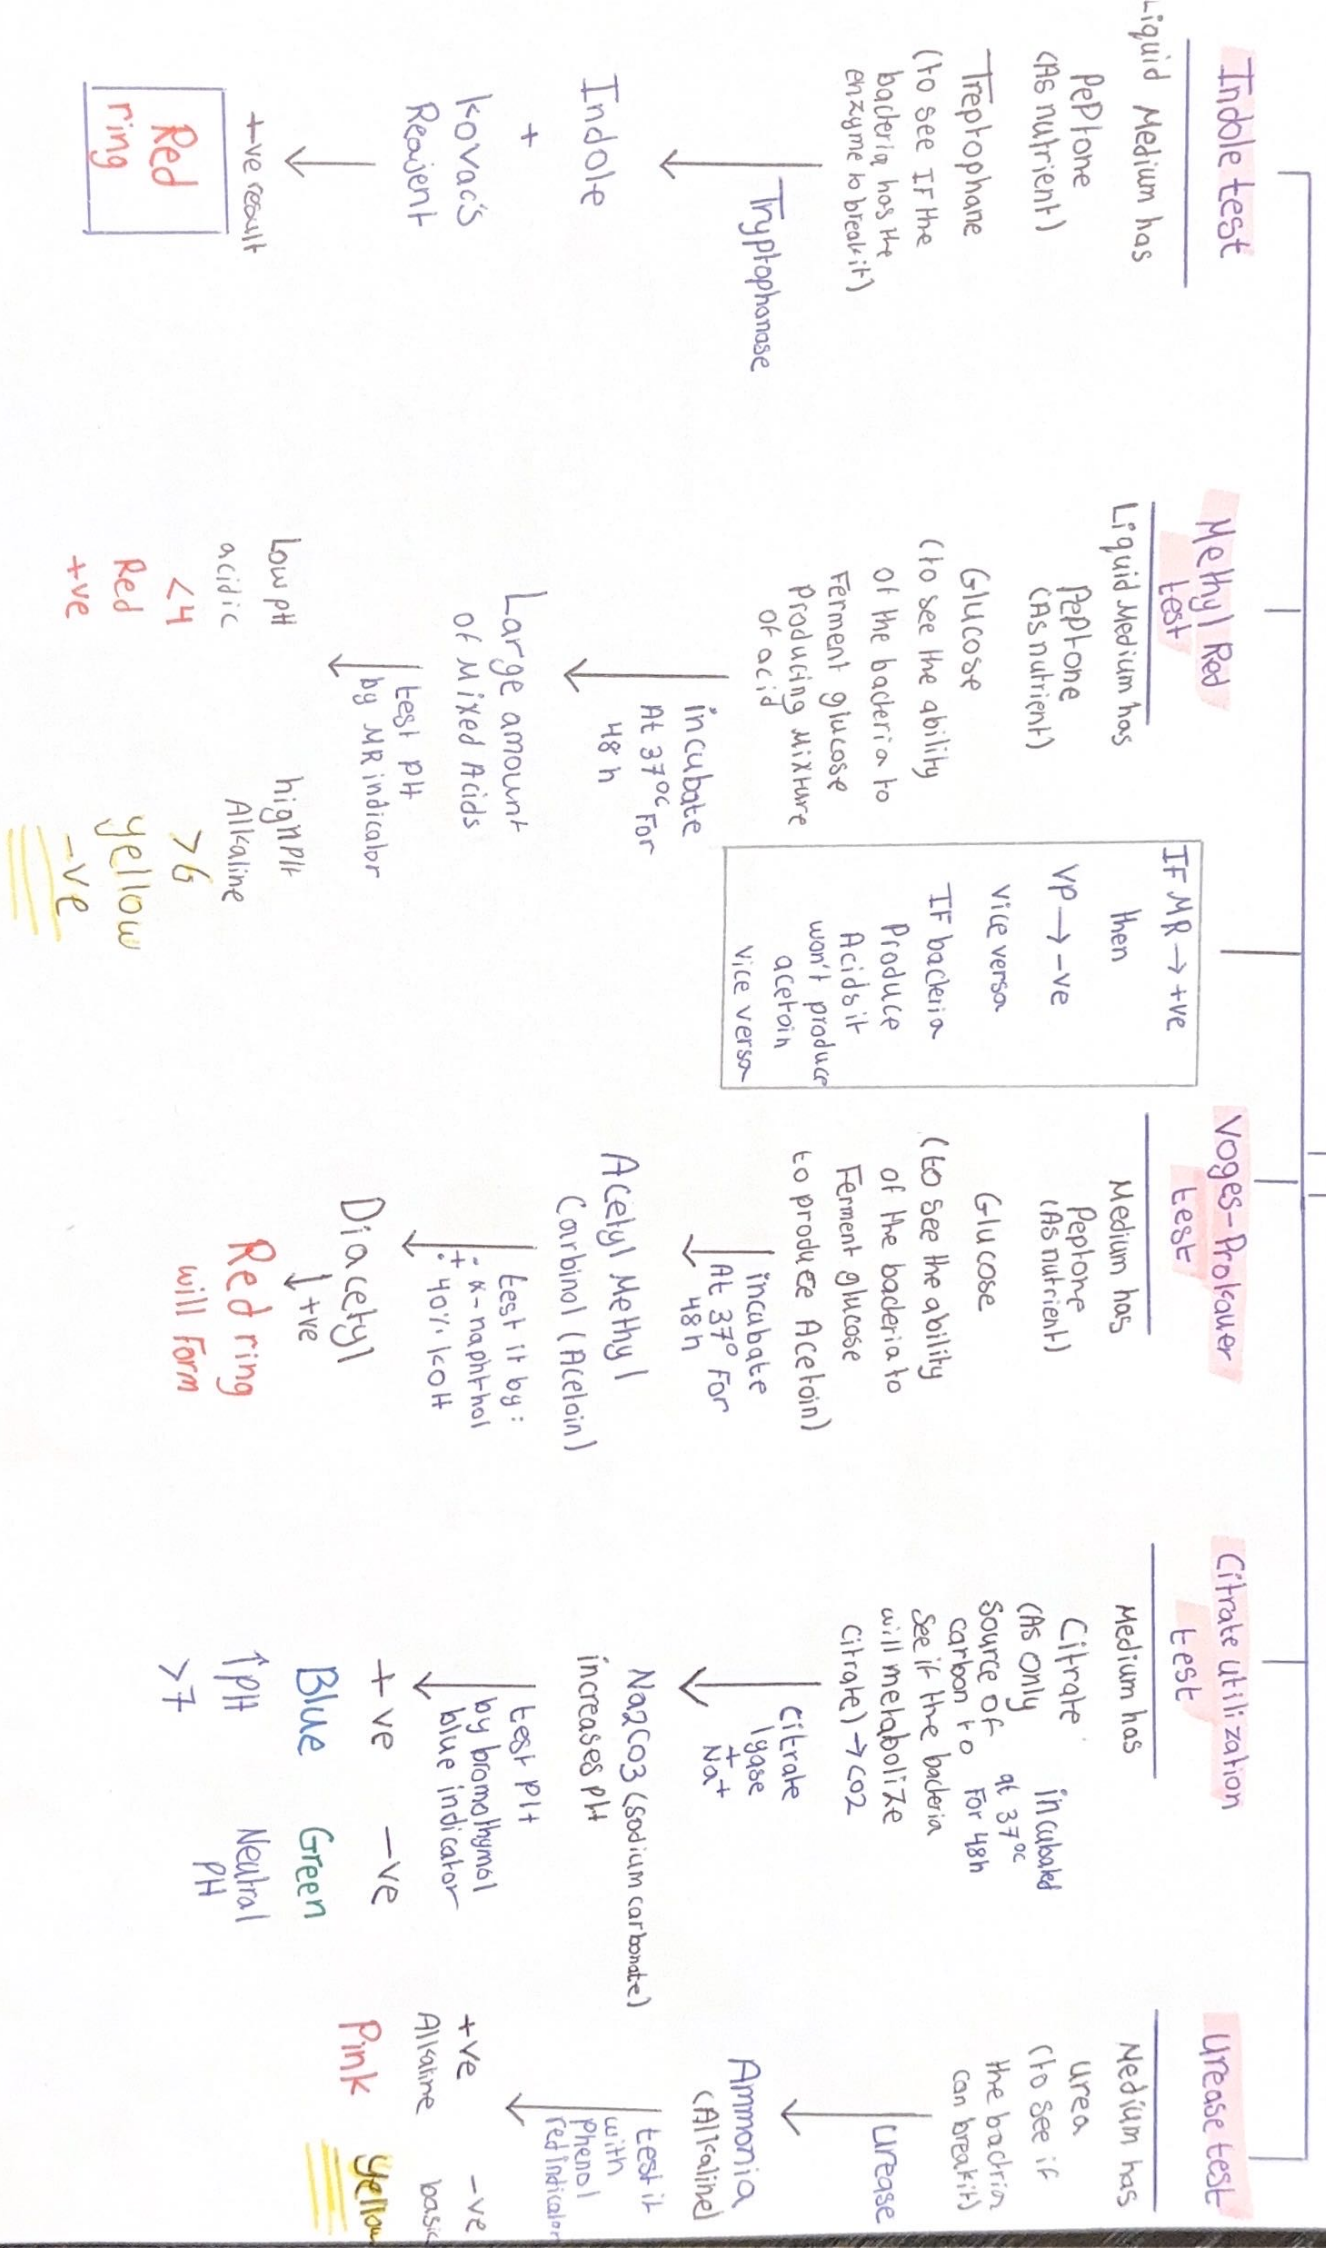 Indole test
Liquid Medium has
Peptone
(As nutrient)
Treptophane
(to see IF the
bacteria has the
enzyme to break it)
Tryptophanase
Indole
+
Kovac's
Reajent
+ve result
Red
ring
Methyl Red
test
Liquid Medium has
Peptone
(As nutrient)
Glucose
(to see the ability
of the bacteria to
Ferment glucose
producing Mixture
of acid
incubate
At 37°C For
48 h
Large amount
of Mixed Acids
test pH
by MR indicator
Low pH
acidic
<4
Red
+ve
high PH
Alkaline
>6
yellow
-ve
IF MR → +ve
then
VP → -ve
vice versa
IF bacteria
Produce
Acids it
won't produce
acetoin
vice versa
Voges-Prokauer
test
Medium has
Peptone
(As nutrient)
Glucose
(to see the ability
of the bacteria to
Ferment glucose
to produce Acetoin)
incubate
At 37° For
48h
Acetyl Methyl
Carbinol (Acetoin)
test it by:
· α-naphthol
+
· 40% KOH
Diacetyl
↓ +ve
Red ring
will Form
Citrate utilization
test
Medium has
Citrate
(As only
source of
carbon to
see if the bacteria
will metabolize
citrate) → CO2
incubated
at 37°C
For 48h
citrate
lyase
+
Na+
Na2CO3 (sodium carbonate)
increases pH
test pH
by bromothymol
blue indicator
+ve
Blue
↑pH
>7
-ve
Green
Neutral
PH
Urease test
Medium has
urea
(to see if
the bactria
can break it)
urease
Ammonia
(Alkaline)
test it
with
Phenol
red indicator
+ve
Alkaline
Pink
-ve
basic
yellow